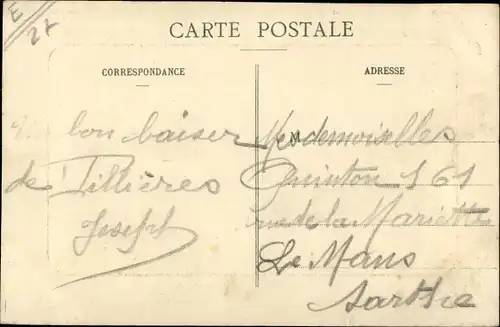 E
27
CARTE POSTALE
CORRESPONDANCE
ADRESSE
Un bon baiser
de Tillières
Joseph
Mesdemoiselles
Quinton 161
rue de la Mariette
Le Mans
Sarthe